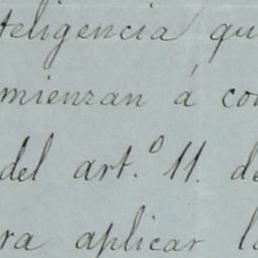 teligencia qu
mienzan á co
del art.º 11. de
ra aplicar l